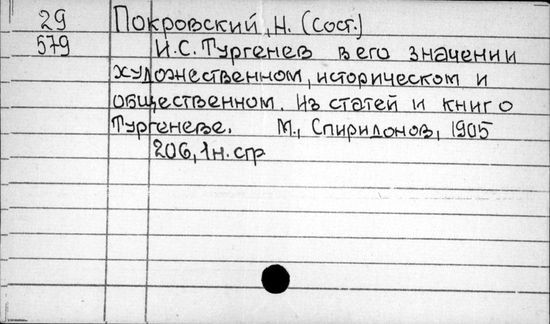 29 Покровский, Н. (Сост.)
579 И.С. Тургенев в его значении
художественном, историческом и
общественном. Из статей и книг о
Тургеневе. М., Спиридонов, 1905
206, 1 н. стр